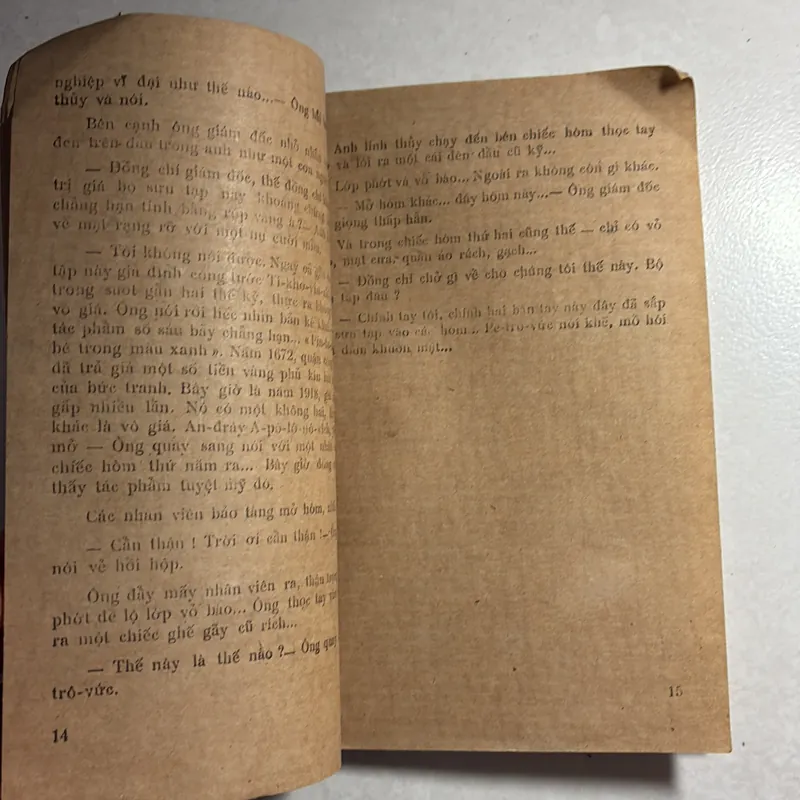 nghiệp vĩ đại như thế nào...— Ông
thủy và nói.
Bên cạnh ông giám đốc nhỏ
đen trên đầu trông anh như một con
— Đồng chí giám đốc, thế đồng chí
trị giá bộ sưu tập này khoảng chừng
chẳng hạn tính bằng rúp vàng à?—
vẻ mặt rạng rỡ với một nụ cười
— Tôi không nói được. Ngay cả
tập này gia đình công tước Ti-kho-
trong suốt gần hai thế kỷ, thực ra
vô giá. Ông nói rồi liếc nhìn bản kê
tác phẩm số sáu bảy chẳng hạn...
bé trong màu xanh». Năm 1672, quận
đã trả giá một số tiền vàng phủ kín
của bức tranh. Bây giờ là năm 1918,
gấp nhiều lần. Nó có một không hai,
khác là vô giá. An-đrây A-pô-lô-nô-vích,
mở — Ông quay sang nói với một nhân
chiếc hòm thứ năm ra... Bây giờ đồng
thấy tác phẩm tuyệt mỹ đó.
Các nhân viên bảo tàng mở hòm,
— Cẩn thận! Trời ơi cẩn thận!—
nói vẻ hồi hộp.
Ông đẩy mấy nhân viên ra, thận
phớt để lộ lớp vỏ bào... Ông thọc tay
ra một chiếc ghế gãy cũ rích...
— Thế này là thế nào?— Ông quay
trô-vức.
14
Anh lính thủy chạy đến bên chiếc hòm thọc tay
và lôi ra một cái đèn dầu cũ kỹ...
Lớp phớt và vỏ bào... Ngoài ra không còn gì khác.
— Mở hòm khác... đây hòm này...— Ông giám đốc
giọng thấp hẳn.
Và trong chiếc hòm thứ hai cũng thế — chỉ có vỏ
mạt cưa, quần áo rách, gạch...
— Đồng chí chở gì về cho chúng tôi thế này. Bộ
tập đâu?
— Chính tay tôi, chính hai bàn tay này đây đã sắp
sưu tập vào các hòm... Pê-trô-vức nói khẽ, mồ hôi
khuôn mặt...
15